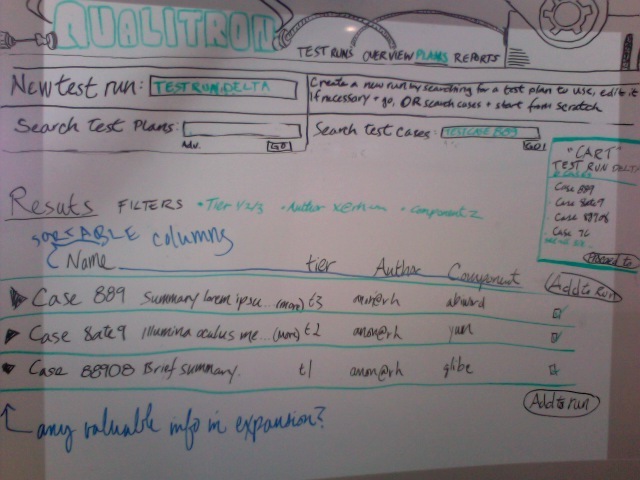 QUALITRON
TEST RUNS OVERVIEW PLANS REPORTS
New test run: TESTRUN.DELTA
Create a new run by searching for a test plan to use, edit it
if necessary + go, OR search cases + start from scratch
Search Test Plans:
Adv. GO
Search test cases: TESTCASE 889
GO!
"CART"
TEST RUN DELTA
Case 889
Case 8ate9
Case 88908
Case 7C
Resuts FILTERS • Tier 1/2/3 • Author • Component Z
SORTABLE columns
Name tier Author Component Add to Run
Case 889 Summary lorem ipsu... (more) t3 anon@rh
Case 8ate9 Illumina oculus me... (more) t2 anon@rh yuen
Case 88908 Brief summary. t1 anon@rh glibe
Add to run
any valuable info in expansion?